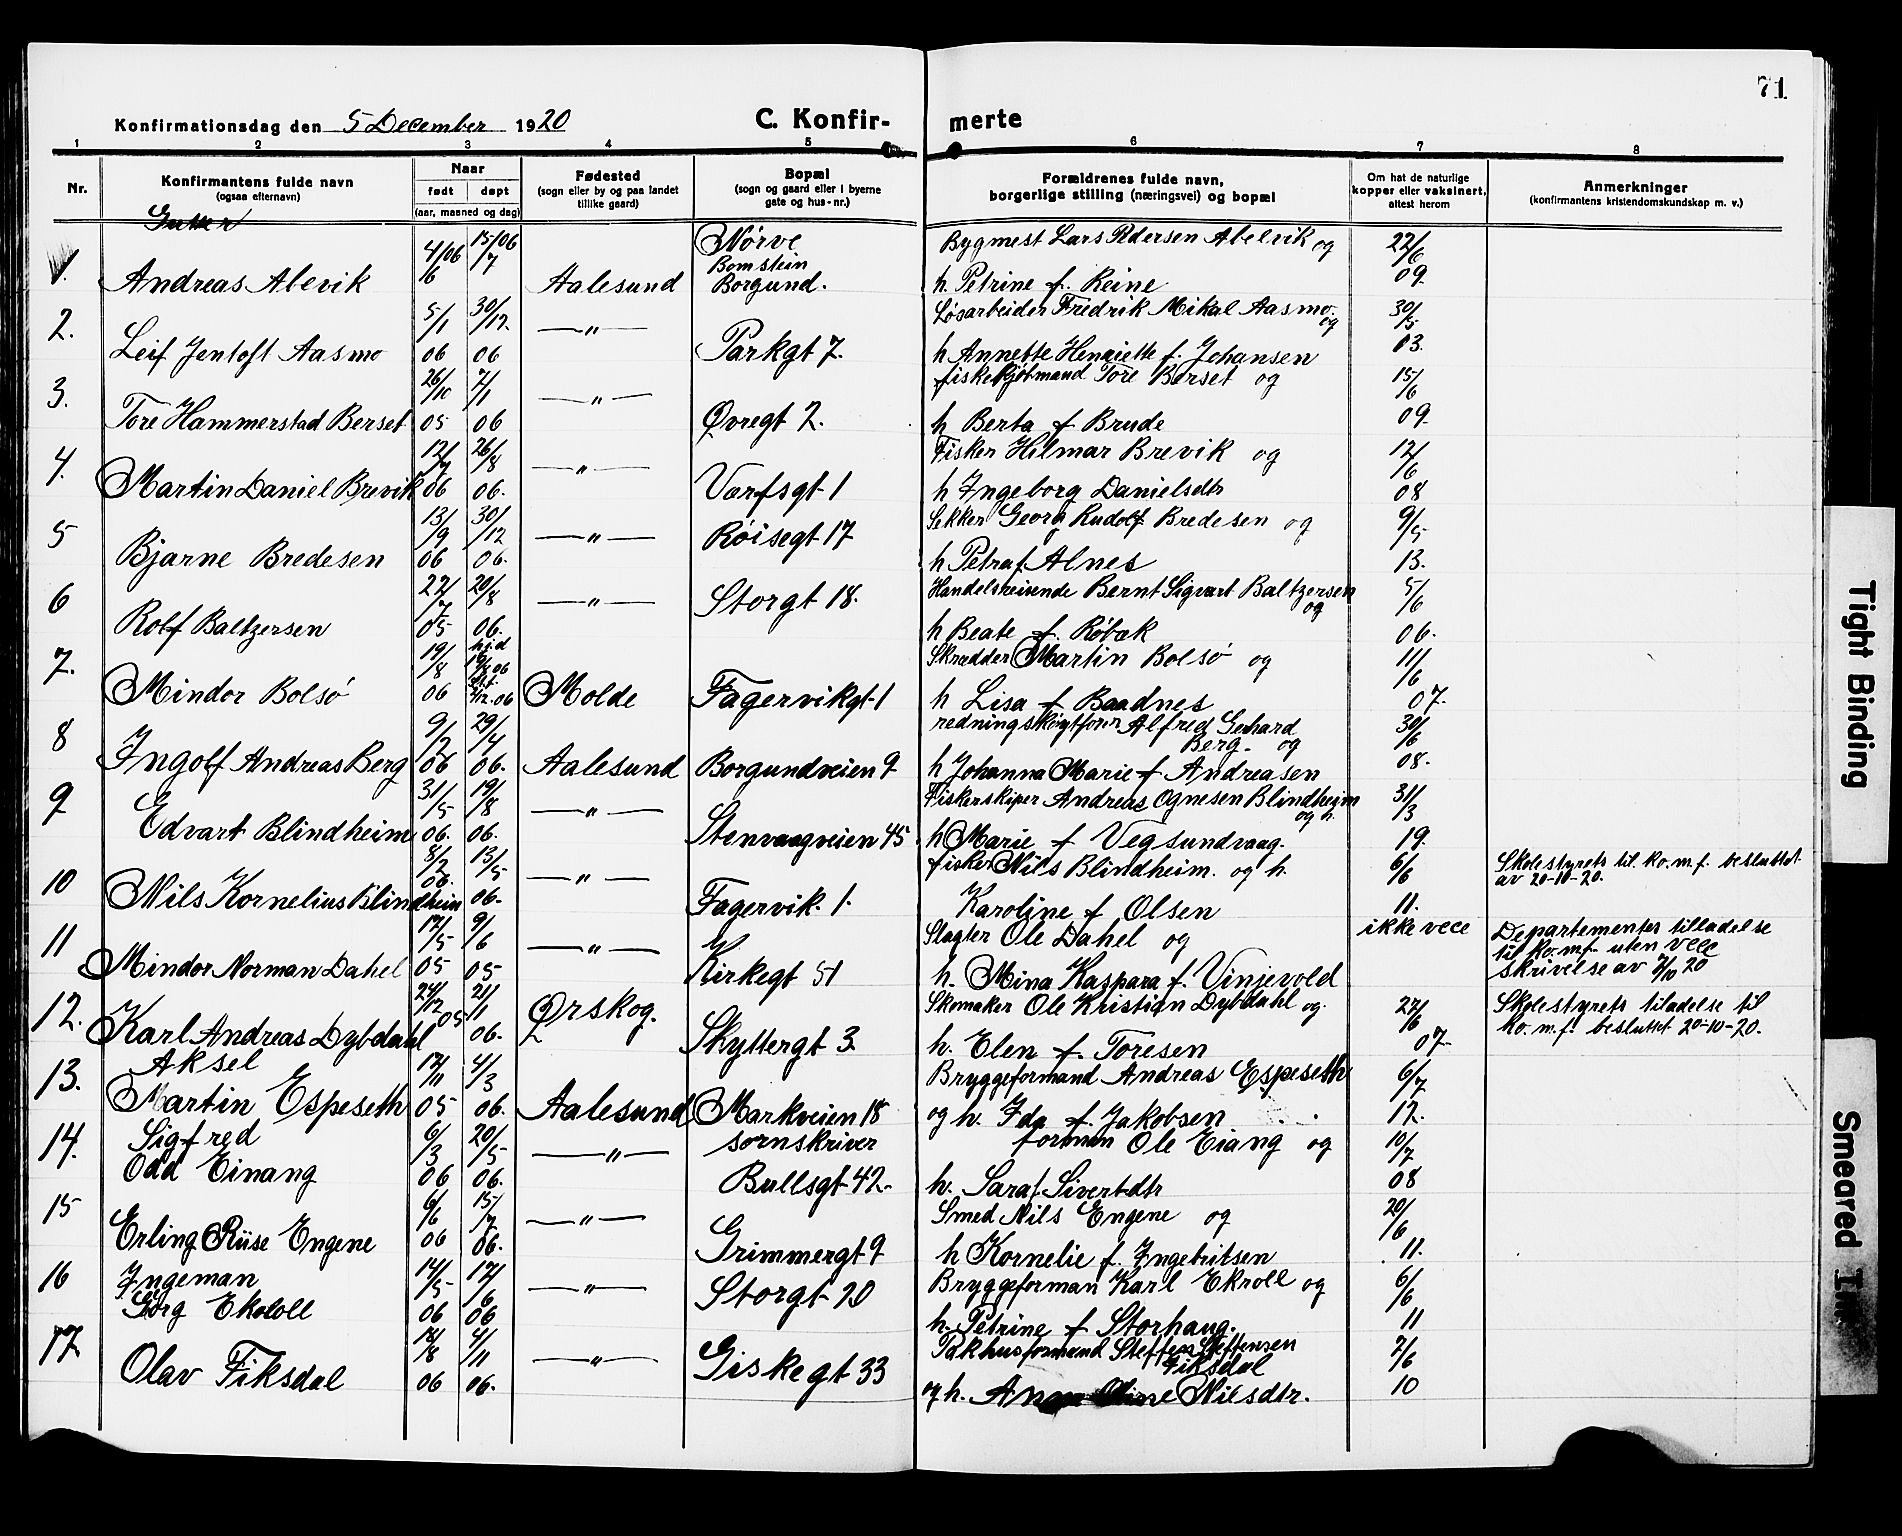 71
Konfirmationsdag den 5 December 1920
C. Konfirmerte
1 2 3 4 5 6 7 8
Nr. Konfirmantens fulde navn (ogsaa efternavn) Naar født døpt (aar, maaned og dag) Fødested (sogn eller by og paa landet tillike gaard) Bopæl (sogn og gaard eller i byerne gate og hus-nr.) Forældrenes fulde navn, borgerlige stilling (næringsvei) og bopæl Om hat de naturlige kopper eller vaksinert, attest herom Anmerkninger (konfirmantens kristendomskundskap m. v.)
Gutter
1. Andreas Alevik 4/6 06 15/7 06 Aalesund Nørve Bomstein Borgund. Bygmest Lars Pedersen Abelvik og h. Petrine f. Reine 22/6 09
2. Leif Jentoft Aasmo 5/1 06 30/12 06 —"— Parkgt 7. Løsarbeider Fredrik Mikal Aasmo og h Annette Henriette f. Johansen 30/5 03.
3. Tore Hammerstad Berset 26/10 05 7/1 06 —"— Øvregt 2. fiskekjøbmand Tore Berset og h Berta f Brude 15/6 09
4. Martin Daniel Brevik 12/7 06 26/8 06. —"— Varfsgt 1 Fisker Hilmar Brevik og h Ingeborg Danielsdtr 12/6 08
5 Bjarne Bredesen 13/9 06 30/12 06. —"— Røisegt 17 Sekker Georg Rudolf Bredesen og h Petra f Alnes 9/5 13.
6 Rolf Baltzersen 22/7 05 20/8 06. —"— Storgt 18. Handelsreisende Bernt Sigvart Baltzersen og h Beate f. Røbæk 5/6 06.
7. Mindor Bolsø 19/8 06 Molde Fagervikgt 1 Skrædder Martin Bolsø og h Lisa f Baadnes 11/6 07.
8 Ingolf Andreas Berg 9/2 06 29/4 06. Aalesund Borgundveien 9 redningskøgtfører Alfred Gerhard Berg og h Johanna Marie f Andreasen 30/6 08.
9 Edvart Blindheim 31/5 06. 19/8 06. —"— Stenvaagveien 45 Fiskerskiper Andreas Ognesen Blindheim og h. h Marie f Vegsundvaag. 31/3 19.
10 Nils Kornelius Blindheim 8/2 06. 13/5 06. —"— Fagervik. 1. fisker Nils Blindheim. og h. Karoline f Olsen 6/6 11. Skolestyrets til. ko.m.f. besluttet av 20-10-20.
11 Mindor Norman Dahel 17/5 05 9/6 05 —"— Kirkegt 51 Slagter Ole Dahel og h. Mina Kaspara f. Vinjevold ikke vece Departementes tilladelse til ko.mf. uten vece skrivelse av 7/10 20
12. Karl Andreas Dybdahl 24/12 05 21/1 06. Ørskog. Skyttergt 3 Skomaker Ole Kristian Dybdahl og h. Elen f. Toresen 27/6 07 Skolestyrets tiladelse til ko.m.f. besluttet 20-10-20.
13. Aksel Martin Espeseth 17/11 05 4/3 06. Aalesund Markveien 18 Bryggeformand Andreas Espeseth og h. Ida f. Jakobsen 6/7 12.
14. Sigfred Odd Einang 6/3 06 20/5 06. —"— sornskriver Bullsgt 42 forman Ole Eiang og h. Sara f Sivertdtr 10/7 08
15 Erling Riise Engene 6/6 06 15/7 06. —"— Grimmergt 9 Smed Nils Engene og h Kornelie f. Ingebritsen 20/6 11.
16 Ingeman 14/5 06 17/6 06 —"— Storgt 20 Bryggeforman Karl Ekroll og h. Petrine f Storhaug. 6/6 11
17. Olav Fiksdal 18/8 06 4/11 06. —"— Giskegt 33 Pakhusformand Steffen Steffensen Fiksdal og h. Nilsdtr. 7/6 10
Tight Binding
Smeared Ink